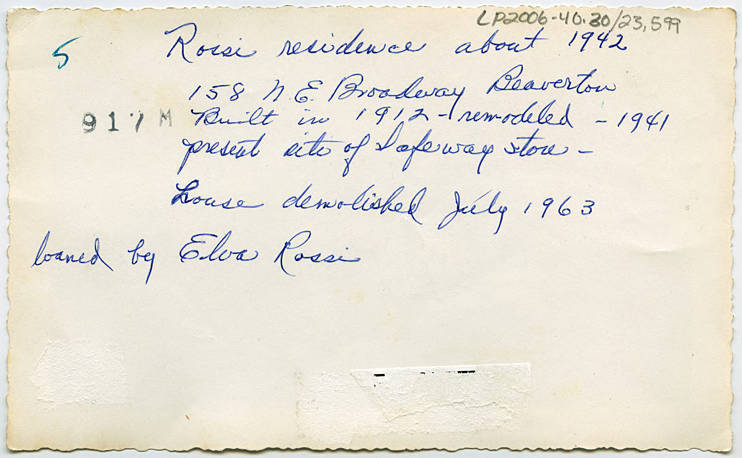 LP2006-40.30/23,599
5 Rossi residence about 1942
158 N.E. Broadway Beaverton
917 M Built in 1912 - remodeled - 1941
present site of Safeway store -
house demolished July 1963
loaned by Elva Rossi